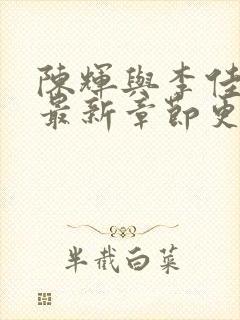 陳輝與李佳
最新章節更
半截白菜